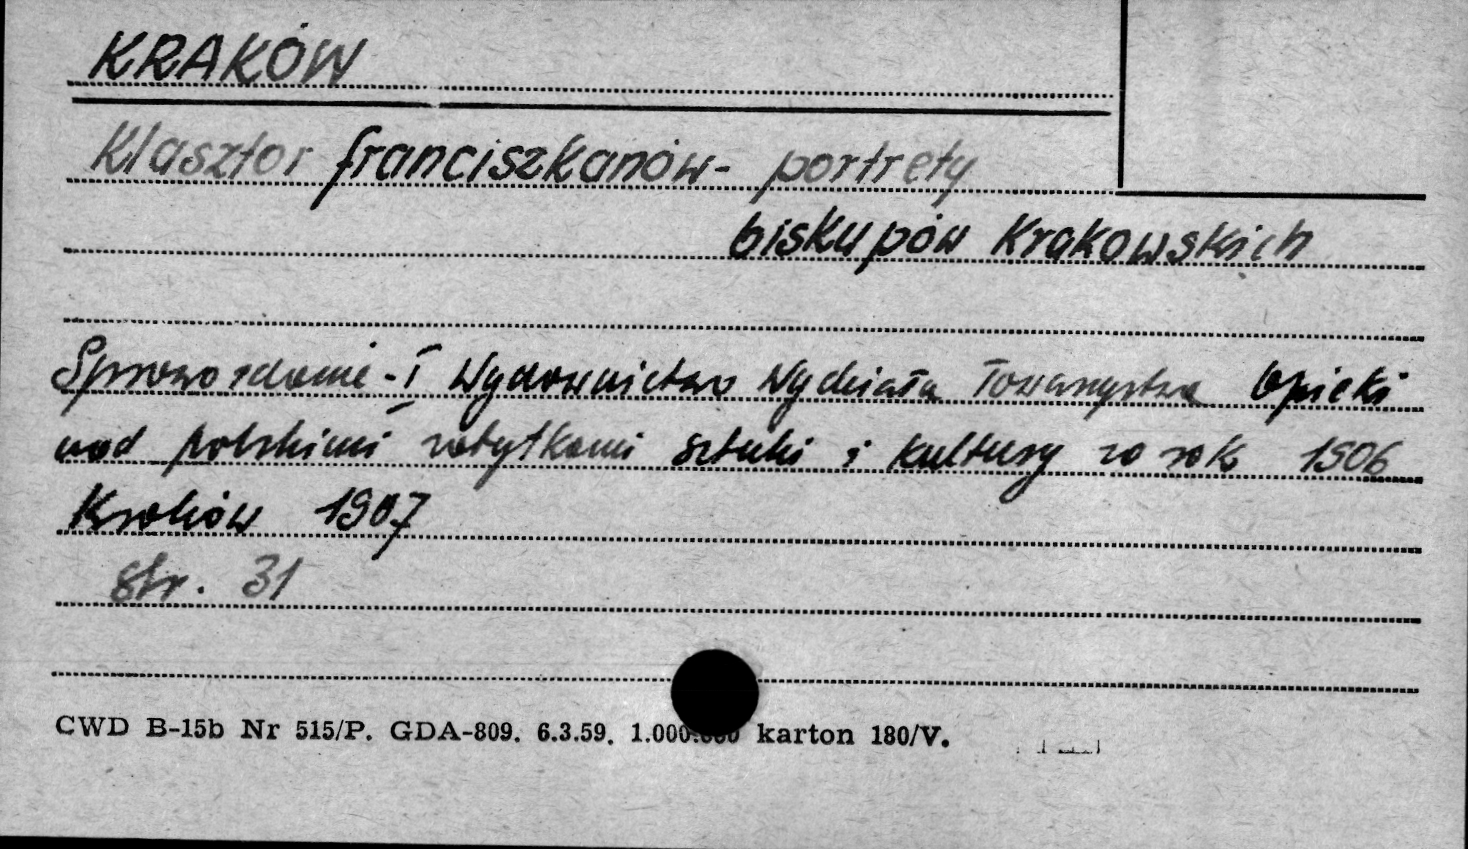 KRAKÓW
Klasztor franciszkanów - portrety
biskupów Krakowskich
Sprawozdanie - I Wydawnictwo Wydziału Towarzystwa Opieki
nad polskimi zabytkami sztuki i kultury za rok 1906
Kraków 1907
str. 31
CWD B-15b Nr 515/P. GDA-809. 6.3.59. 1.000.000 karton 180/V.